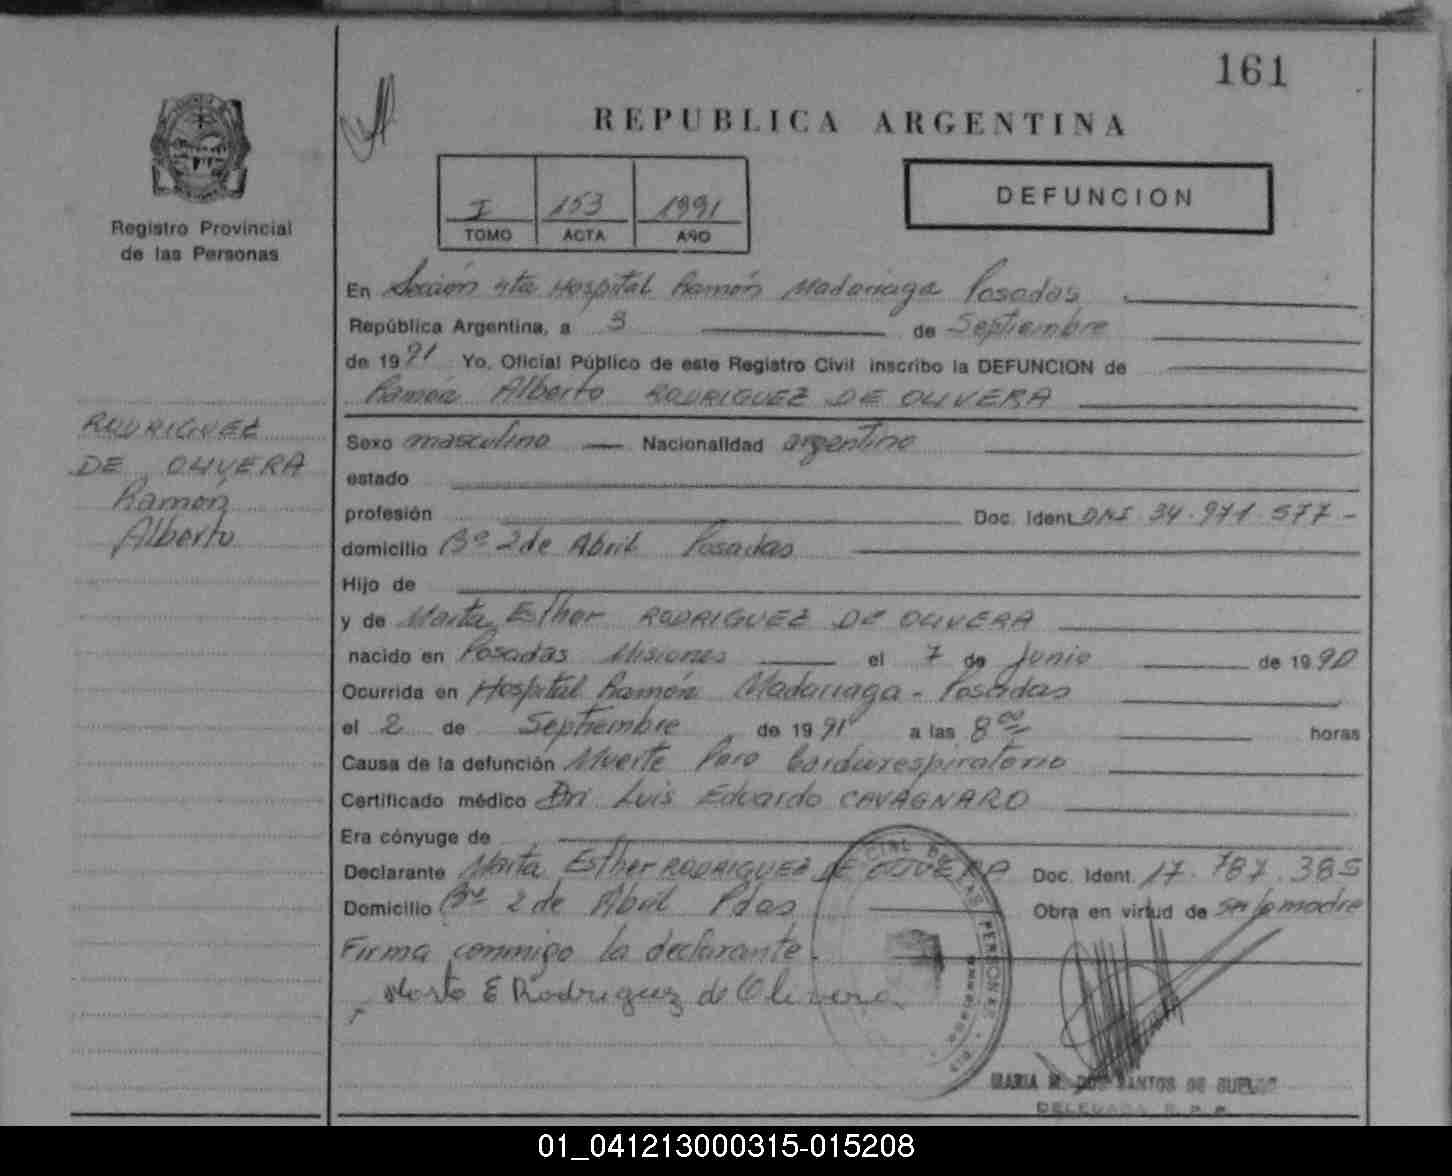 161
REPUBLICA ARGENTINA
Registro Provincial
de las Personas
I 153 1991
TOMO ACTA AÑO
DEFUNCION
En Sección 4ta Hospital Ramón Madariaga Posadas
República Argentina, a 3 de Septiembre
de 1991 Yo, Oficial Público de este Registro Civil inscribo la DEFUNCION de
Ramón Alberto RODRIGUEZ DE OLIVERA
RODRIGUEZ
DE OLIVERA
Ramón
Alberto
Sexo masculino — Nacionalidad argentino
estado
profesión Doc. Ident. DNI 34.971.577-
domicilio Bº 2 de Abril Posadas
Hijo de
y de Marta Esther RODRIGUEZ DE OLIVERA
nacido en Posadas Misiones el 7 de Junio de 1990
Ocurrida en Hospital Ramón Madariaga - Posadas
el 2 de Septiembre de 1991 a las 8 00 horas
Causa de la defunción Muerte Paro Cardiorespiratorio
Certificado médico Dr. Luis Eduardo CAVAGNARO
Era cónyuge de
Declarante Marta Esther RODRIGUEZ DE OLIVERA Doc. Ident. 17.787.385
Domicilio Bº 2 de Abril Pdas Obra en virtud de ser la madre
Firma conmigo la declarante.
Marta E Rodriguez de Olivera
MARIA M. DOS SANTOS DE
DELEGADA R. P. P.
01_041213000315-015208